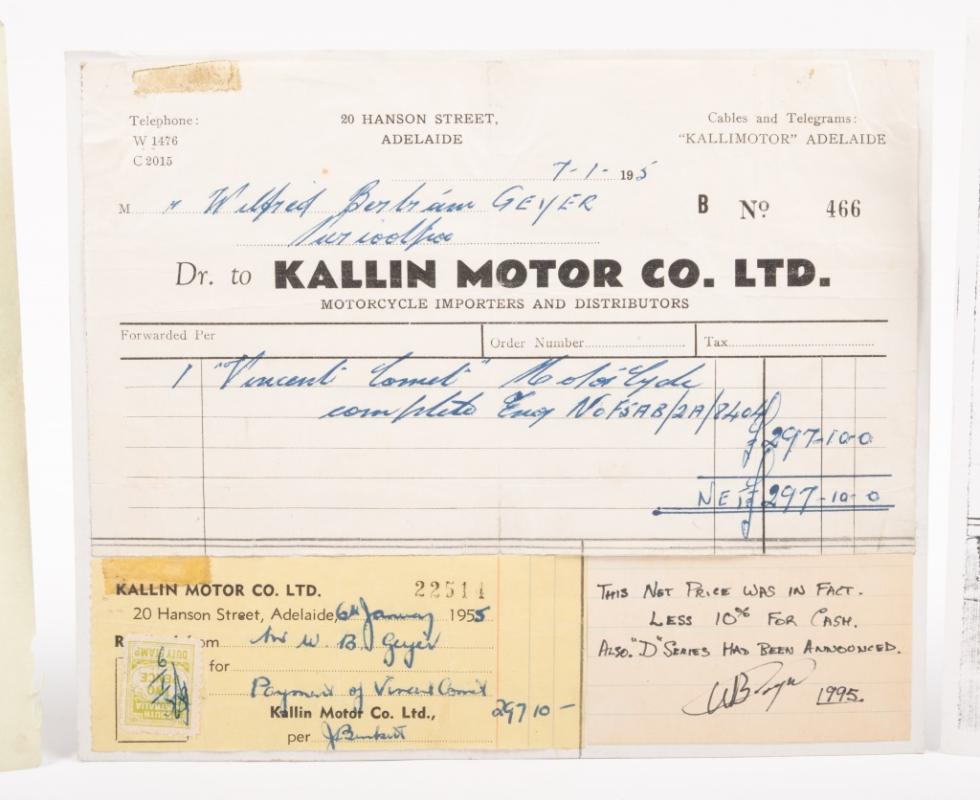 Telephone:
W 1476
C 2015
20 HANSON STREET,
ADELAIDE
Cables and Telegrams:
"KALLIMOTOR" ADELAIDE
7-1- 195
M r Wilfred Bertram GEYER
B No 466
Dr. to KALLIN MOTOR CO. LTD.
MOTORCYCLE IMPORTERS AND DISTRIBUTORS
Forwarded Per
Order Number
Tax
1 "Vincent Comet" MotorCycle
complete Eng No F5AB/2A/8404
£ 297-10-0
NET £ 297-10-0
KALLIN MOTOR CO. LTD. 22511
20 Hanson Street, Adelaide, 6th January 1955
Mr W. B. Geyer
for
Payment of Vincent Comet
Kallin Motor Co. Ltd., 297 10 -
per
DUTY STAMP
TWO PENCE
SOUTH AUSTRALIA
THIS NET PRICE WAS IN FACT.
LESS 10% FOR CASH.
ALSO "D" SERIES HAD BEEN ANNOUNCED.
WB Geyer 1995.